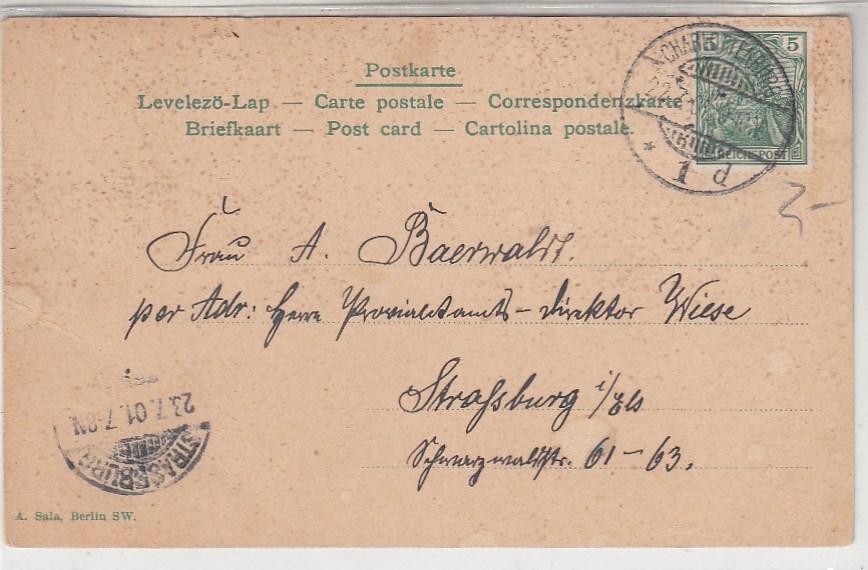 Postkarte
Levelező-Lap — Carte postale — Correspondenzkarte
Briefkaart — Post card — Cartolina postale.
5
REICHSPOST
CHARLOTTENBURG
1 p
Frau A. Baerwaldt.
per Adr: Herrn Proviantamts-Direktor Wiese
Straßburg i/Els
Schwarzwaldstr. 61-63.
STRASSBURG
23.7.01.7-8N
A. Sala, Berlin SW.